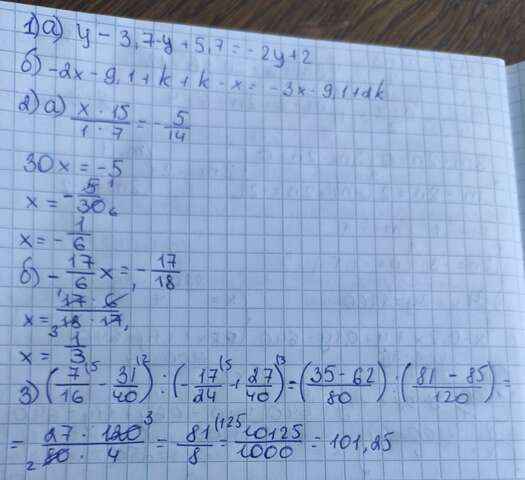 1) а) y - 3,7 - y + 5,7 = - 2y + 2
б) -2x - 9,1 + k + k - x = -3x - 9,1 + 2k
2) а) x · 15 / 1 · 7 = - 5/14
30x = -5
x = - 5¹/30₆
x = - 1/6
б) - 17/6 x = - 17/18
x = 17 · 6 / ₃18 · 17₁
x = 1/3
3) (7⁽⁵/16 - 31⁽²/40) : (- 17⁽⁵/24 + 27⁽³/40) = (35 - 62 / 80) : (81 - 85 / 120) =
= 27 · 120³ / ₂80 · 4 = 81⁽¹²⁵/8 = 10125/1000 = 101,25